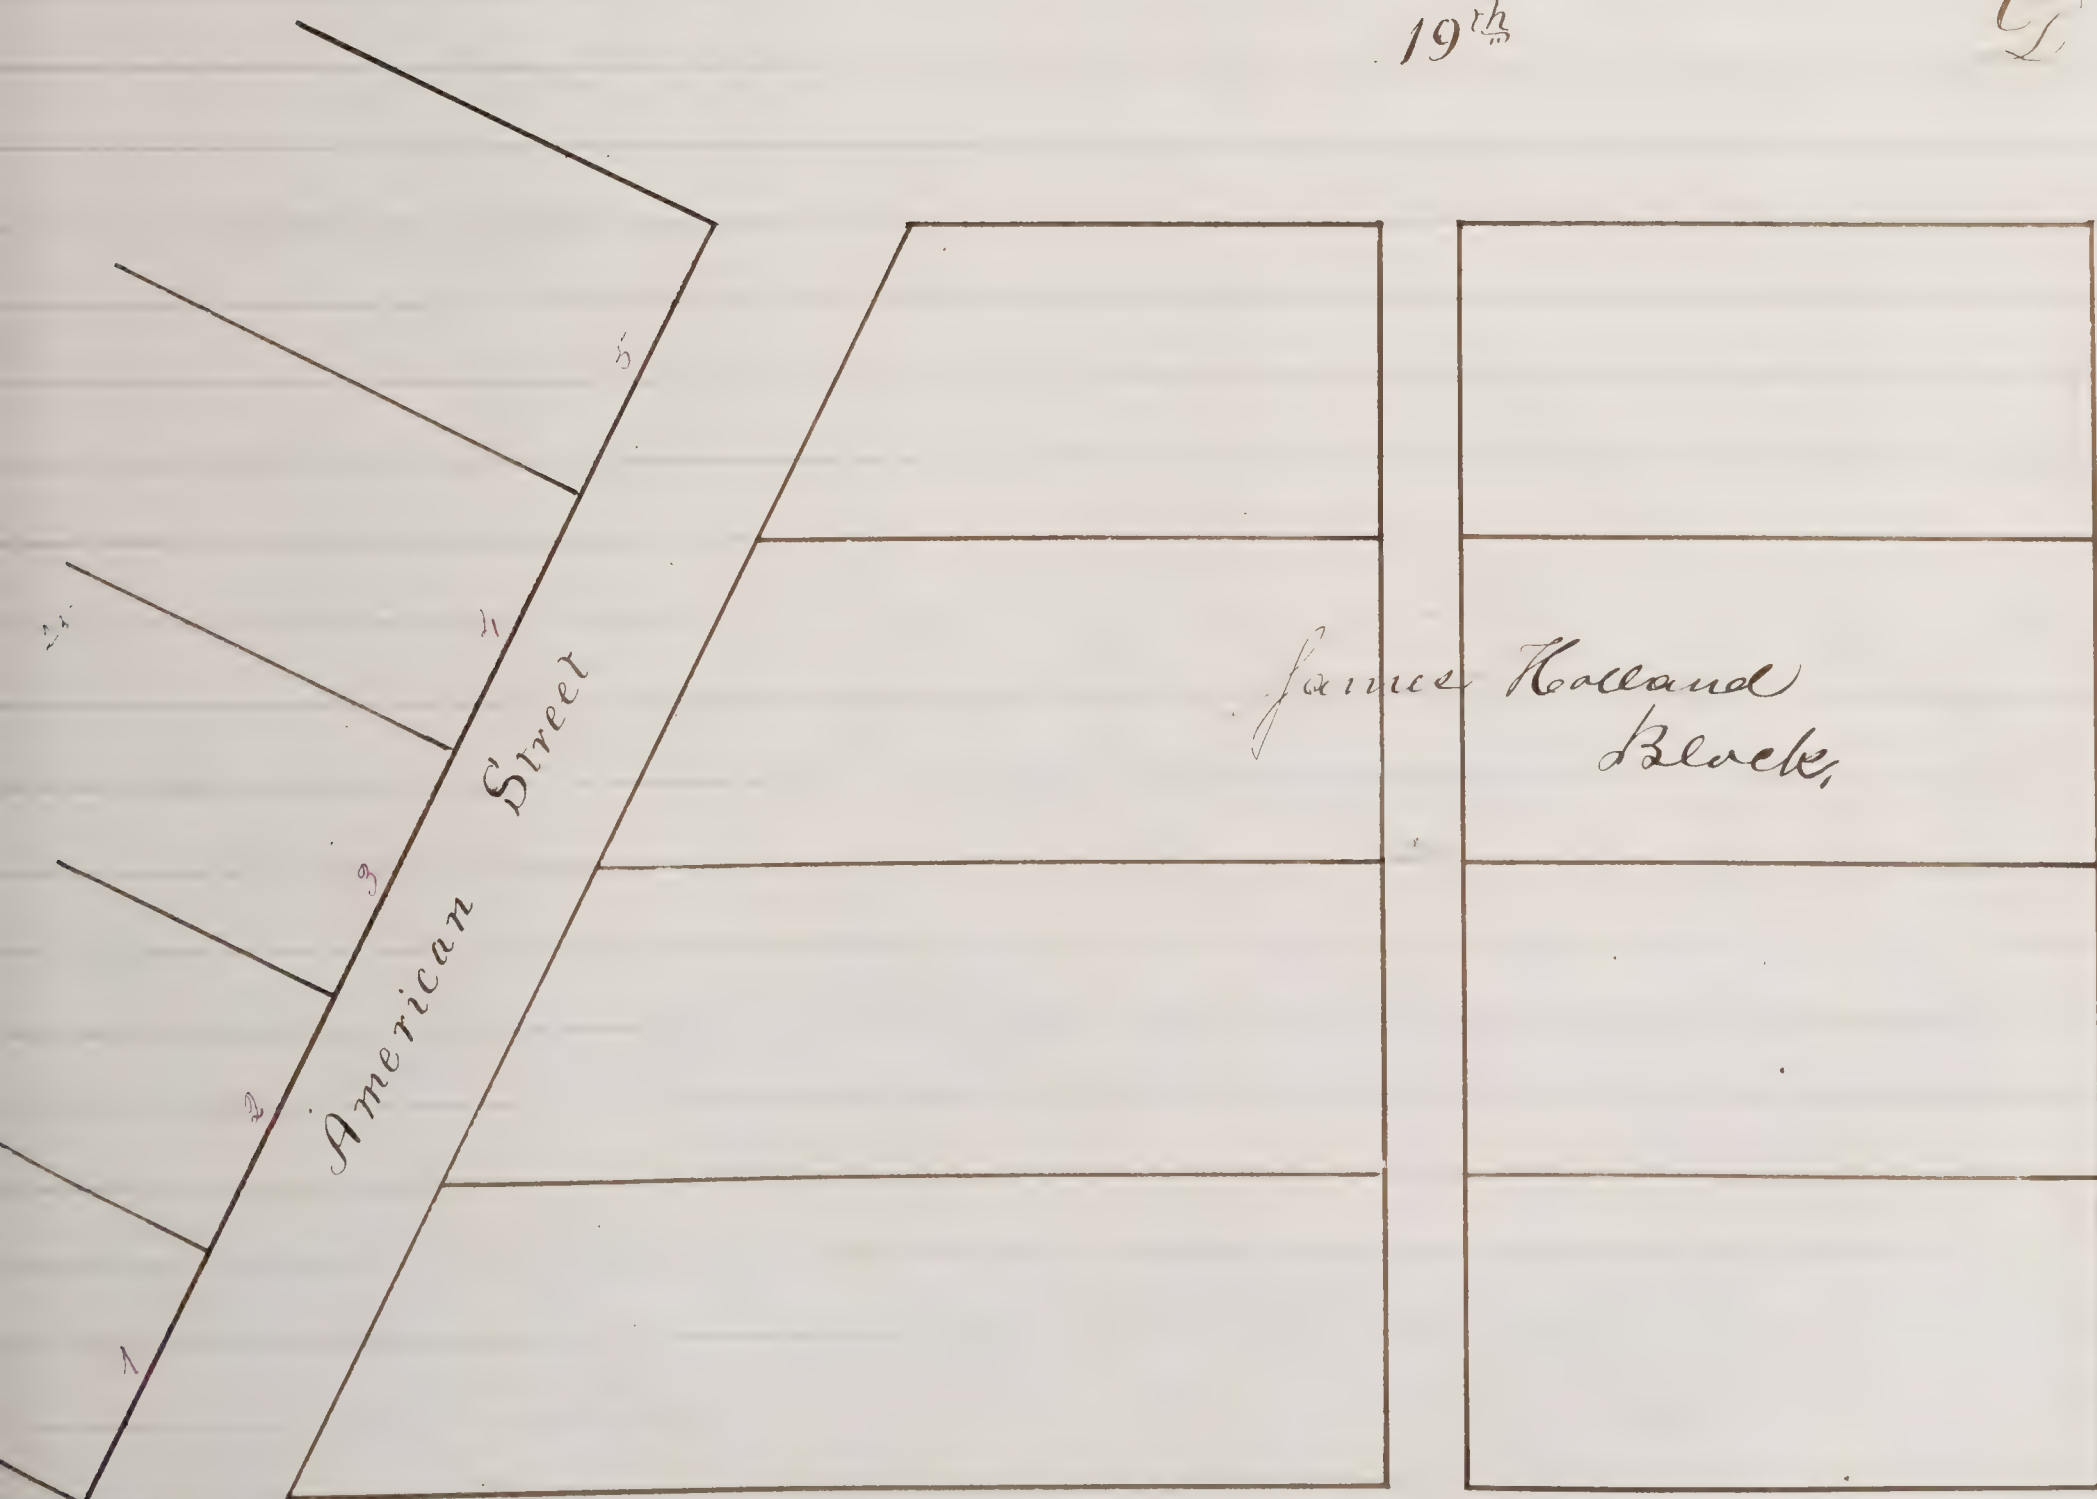 19th
5
4
3
2
1
American Street
James Holland
Block,